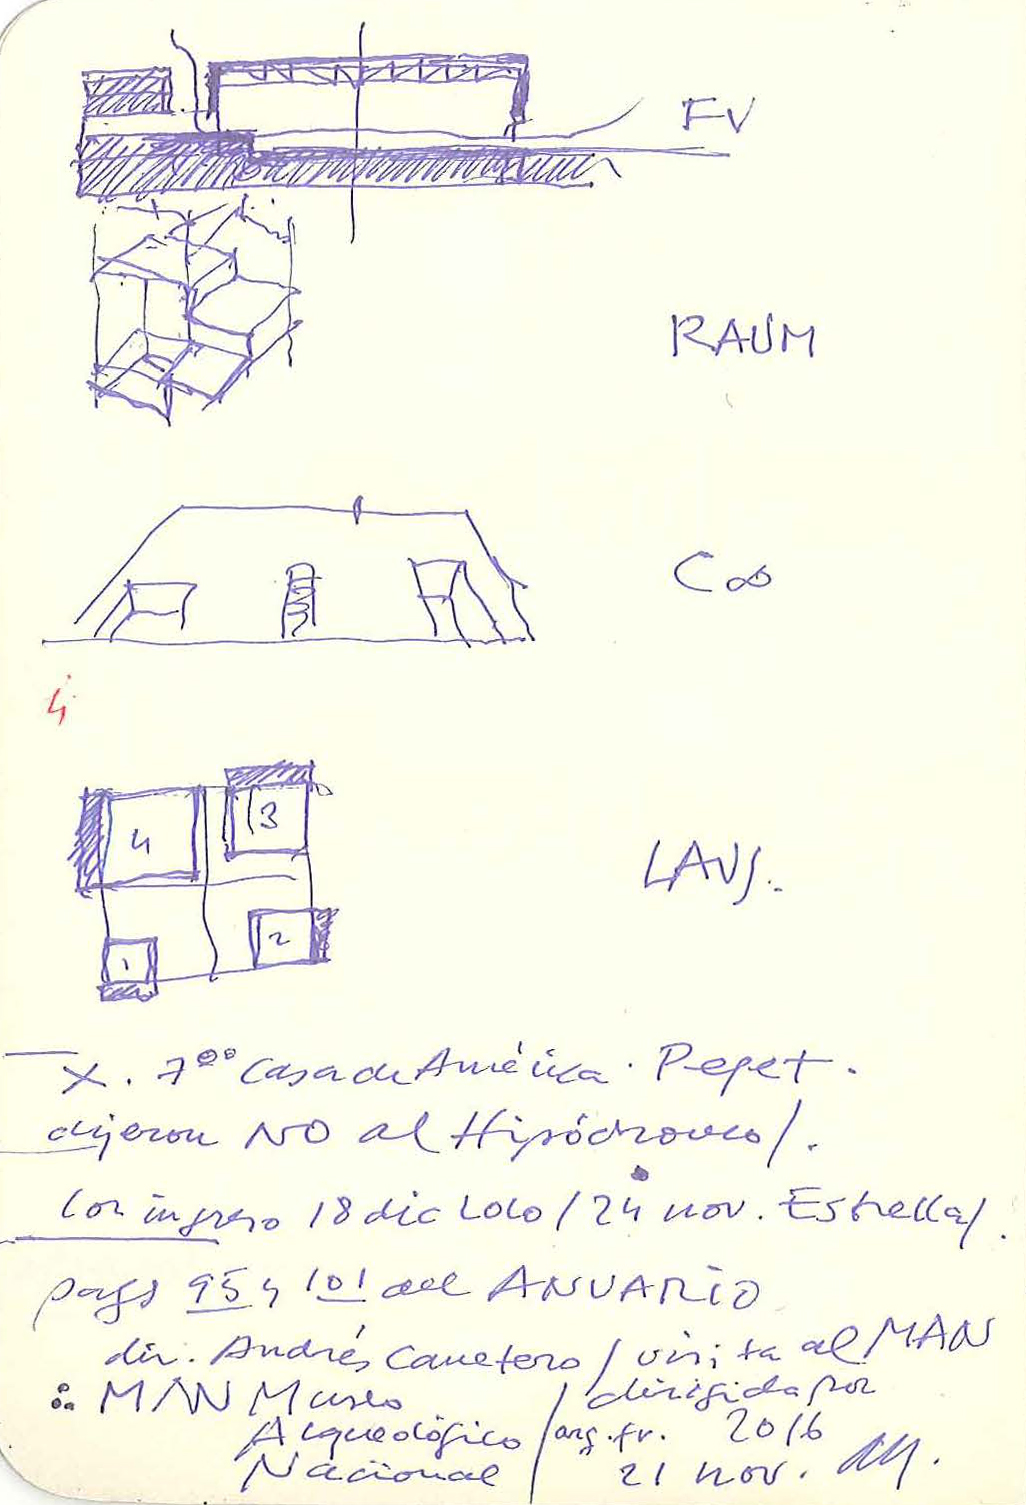 FV
RAUM
C∞
4
4 3
LAUS.
1 2
X. 7ºº Casa de América. Pepet.
dijeron NO al Hipódromo/.
Con ingreso 18 dic LOLO / 24 nov. Estrella/.
pags 95 y 101 del ANUARIO
dir. Andrés Carretero / visita al MAN
MAN Museo / dirigida por
Arqueológico / arq. fr. 2016
Nacional / 21 nov.